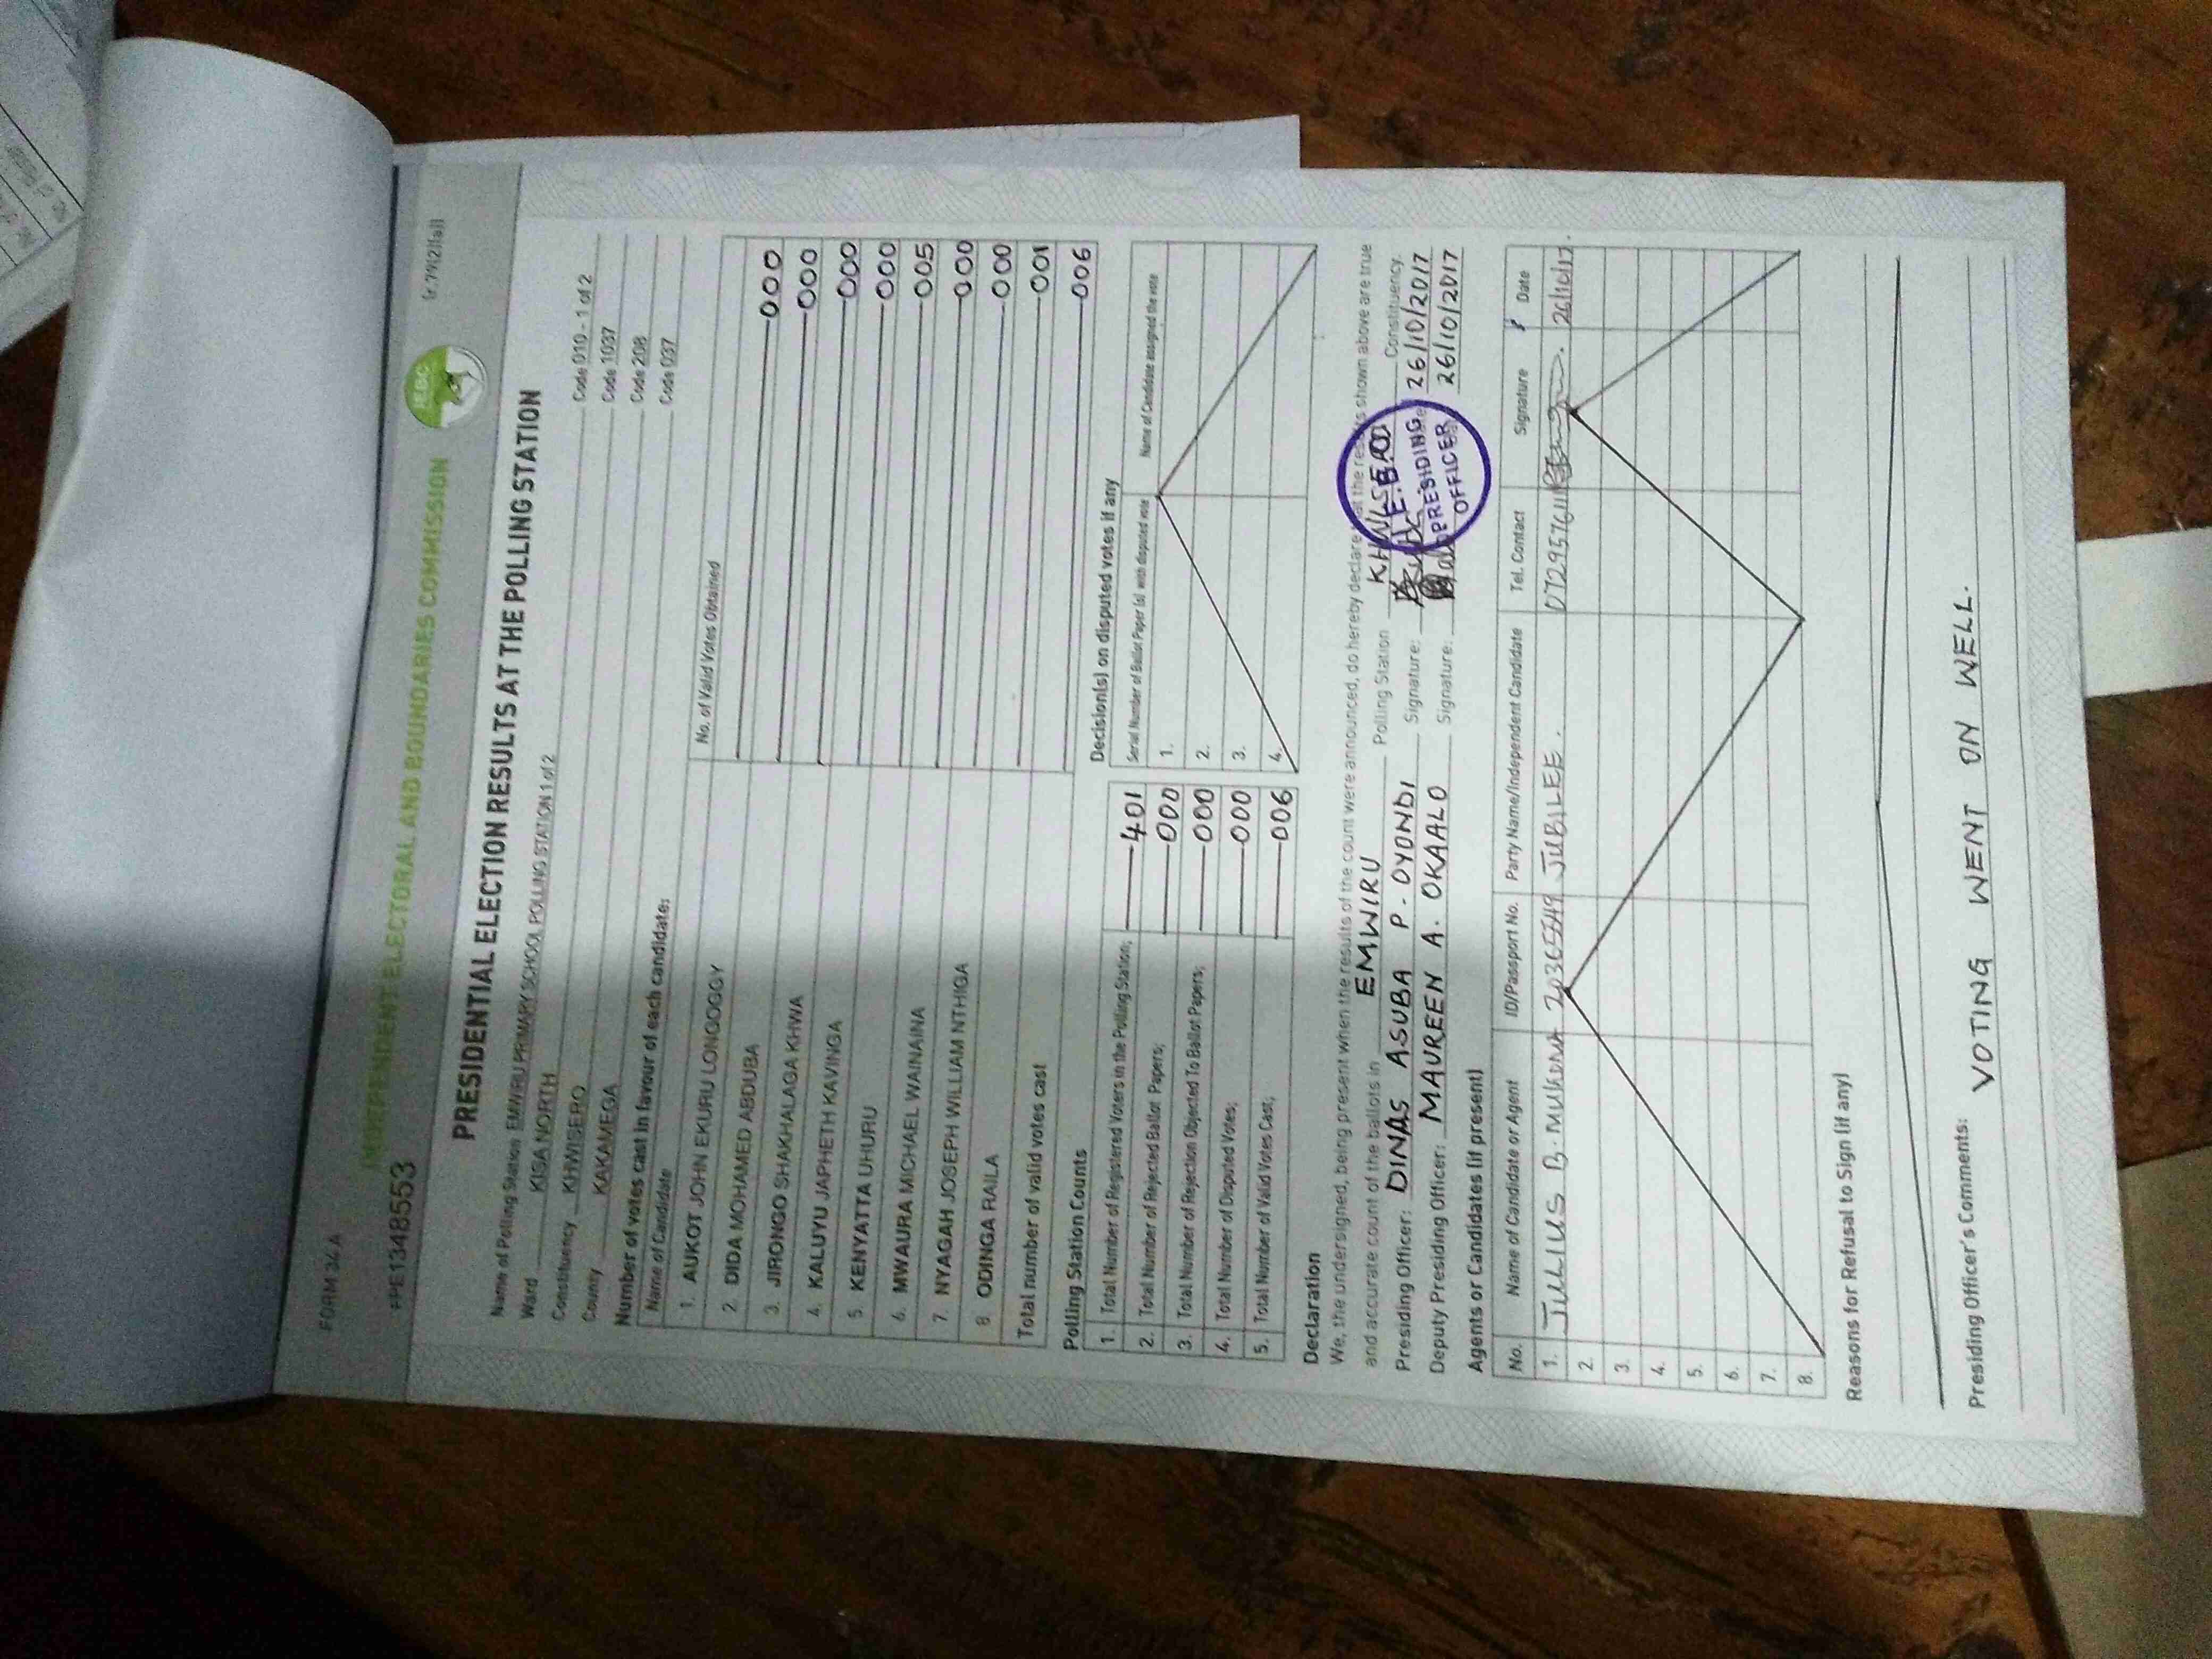 FORM 34 A
(r.79(2)(a))
INDEPENDENT ELECTORAL AND BOUNDARIES COMMISSION
IEBC
PRESIDENTIAL ELECTION RESULTS AT THE POLLING STATION
Name of Polling Station EMWIRU PRIMARY SCHOOL POLLING STATION 1 of 2 Code 010 - 1 of 2
Ward KISA NORTH Code 1037
Constituency KHWISERO Code 208
County KAKAMEGA Code 037
Number of votes cast in favour of each candidate:
Name of Candidate No. of Valid Votes Obtained
1. AUKOT JOHN EKURU LONGOGGY 000
2. DIDA MOHAMED ABDUBA 000
3. JIRONGO SHAKHALAGA KHWA 000
4. KALUYU JAPHETH KAVINGA 000
5. KENYATTA UHURU 005
6. MWAURA MICHAEL WAINAINA 000
7. NYAGAH JOSEPH WILLIAM NTHIGA 000
8. ODINGA RAILA 001
Total number of valid votes cast 006
Polling Station Counts
1. Total Number of Registered Voters in the Polling Station; 401
2. Total Number of Rejected Ballot Papers; 000
3. Total Number of Rejection Objected To Ballot Papers; 000
4. Total Number of Disputed Votes; 000
5. Total Number of Valid Votes Cast; 006
Decision(s) on disputed votes if any
Serial Number of Ballot Paper (s) with disputed vote Name of Candidate assigned the vote
1.
2.
3.
4.
Declaration
We, the undersigned, being present when the results of the count were announced, do hereby declare that the results shown above are true
and accurate count of the ballots in EMWIRU Polling Station KHWISERO Constituency.
Presiding Officer: DINAS ASUBA P. OYONDI Signature: 26/10/2017
Deputy Presiding Officer: MAUREEN A. OKAALO Signature: 26/10/2017
PRESIDING
OFFICER
Agents or Candidates (if present)
No. Name of Candidate or Agent ID/Passport No. Party Name/Independent Candidate Tel. Contact Signature Date
1. JULIUS B. JUBILEE. 26/10/17.
2.
3.
4.
5.
6.
7.
8.
Reasons for Refusal to Sign (if any)
Presiding Officer's Comments: VOTING WENT ON WELL.